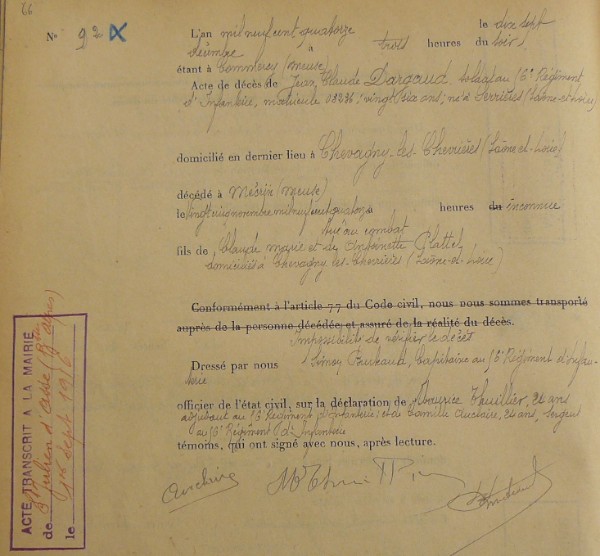 66
N° 92
L'an mil neuf cent quatorze le dix sept
décembre à trois heures du soir,
étant à Commercy (Meuse)
Acte de décès de Jean Claude Dargaud, soldat au Régiment
d'Infanterie, matricule 08236, vingt six ans, né à Serrières (Saône-et-Loire)
domicilié en dernier lieu à Chevagny-les-Chevrières (Saône-et-Loire)
décédé à Mécrin (Meuse)
le novembre mil neuf cent quatorze heures du inconnue
tué au combat
fils de Claude Marie et de Antoinette Plattet
domiciliés à Chevagny les Chevrières (Saône-et-Loire)
Conformément à l'article 77 du Code civil, nous nous sommes transporté
auprès de la personne décédée et assuré de la réalité du décès.
Impossibilité de vérifier le décès
Dressé par nous Simon, Capitaine au Régiment d'infan-
terie
officier de l'état civil, sur la déclaration de Maurice Thuillier, ans
adjudant au Régiment d'Infanterie et de Camille Auclaire, 24 ans, sergent
au Régiment d'Infanterie
témoins, qui ont signé avec nous, après lecture.
ACTE TRANSCRIT A LA MAIRIE
de St Julien d'
le Sept 1916